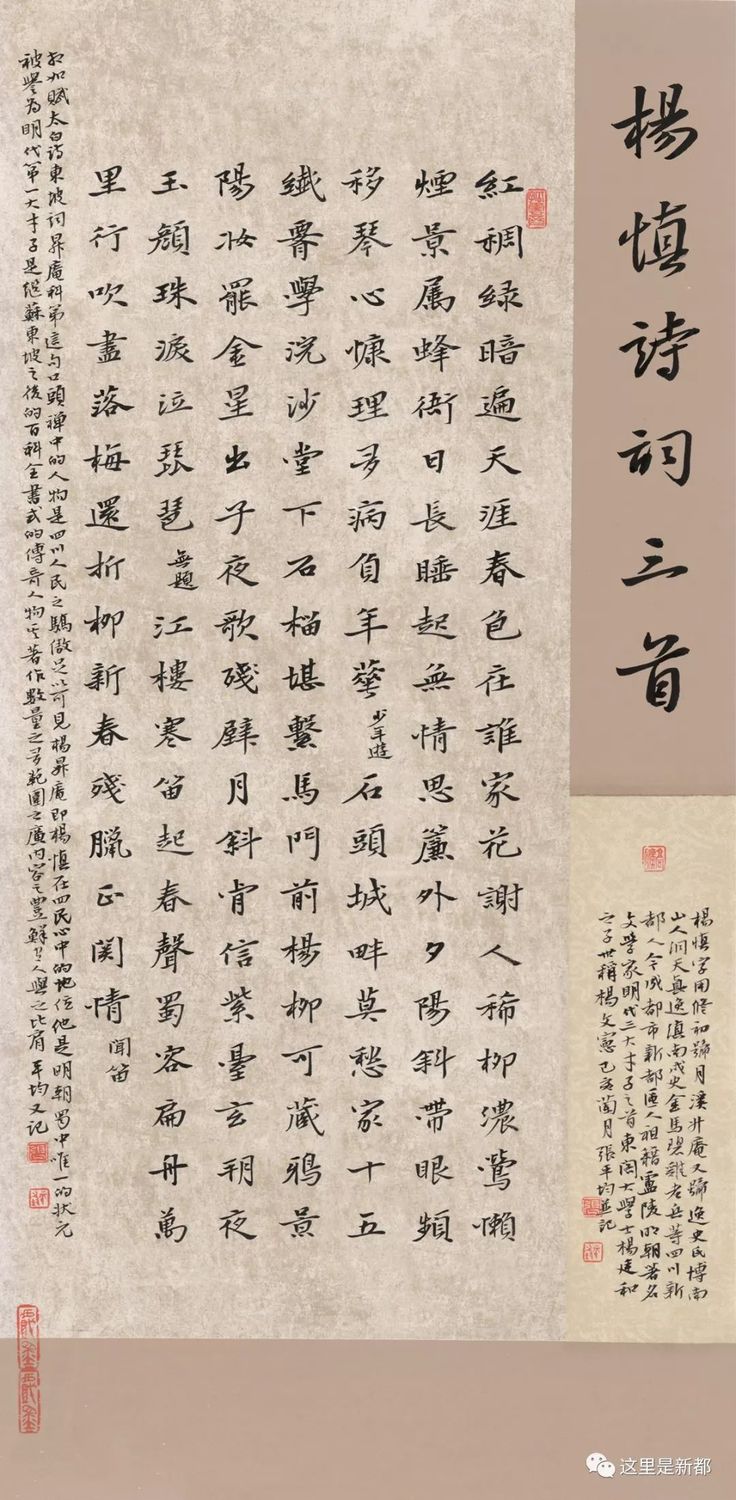 楊慎詩詞三首
楊慎字用修初號月溪升庵又號逸史氏博南
山人洞天真逸滇南戍史金馬碧雞老兵等四川新
都人今成都市新都區人祖籍廬陵明朝著名
文學家明代三大才子之首東閣大學士楊廷和
之子世稱楊文憲己亥蘭月張平均並記
紅稠绿暗遍天涯春色在誰家花謝人稀柳濃鶯懶
煙景属蜂衙日長睡起無情思簾外夕陽斜帶眼頻
移琴心慵理多病負年華 少年遊 石頭城畔莫愁家十五
纖罥學浣沙堂下石榴堪繫馬門前楊柳可藏鴉景
陽妆罷金星出子夜歌殘璧月斜肯信紫臺玄朔夜
玉顏珠淚泣琵琶 無題 江樓寒笛起春聲蜀客扁舟萬
里行吹盡落梅還折柳新春殘臘正関情 聞笛
相如賦太白詩東坡詞昇庵科第這句口頭禪中的人物是四川人民之驕傲足以可見楊昇庵即楊慎在四民心中的地位他是明朝蜀中唯一的狀元
被譽為明代第一大才子是繼蘇東坡之後的百科全書式的傳奇人物其著作數量之多範圍之廣内容之豐鮮有人與之比肩 平均又記
这里是新都